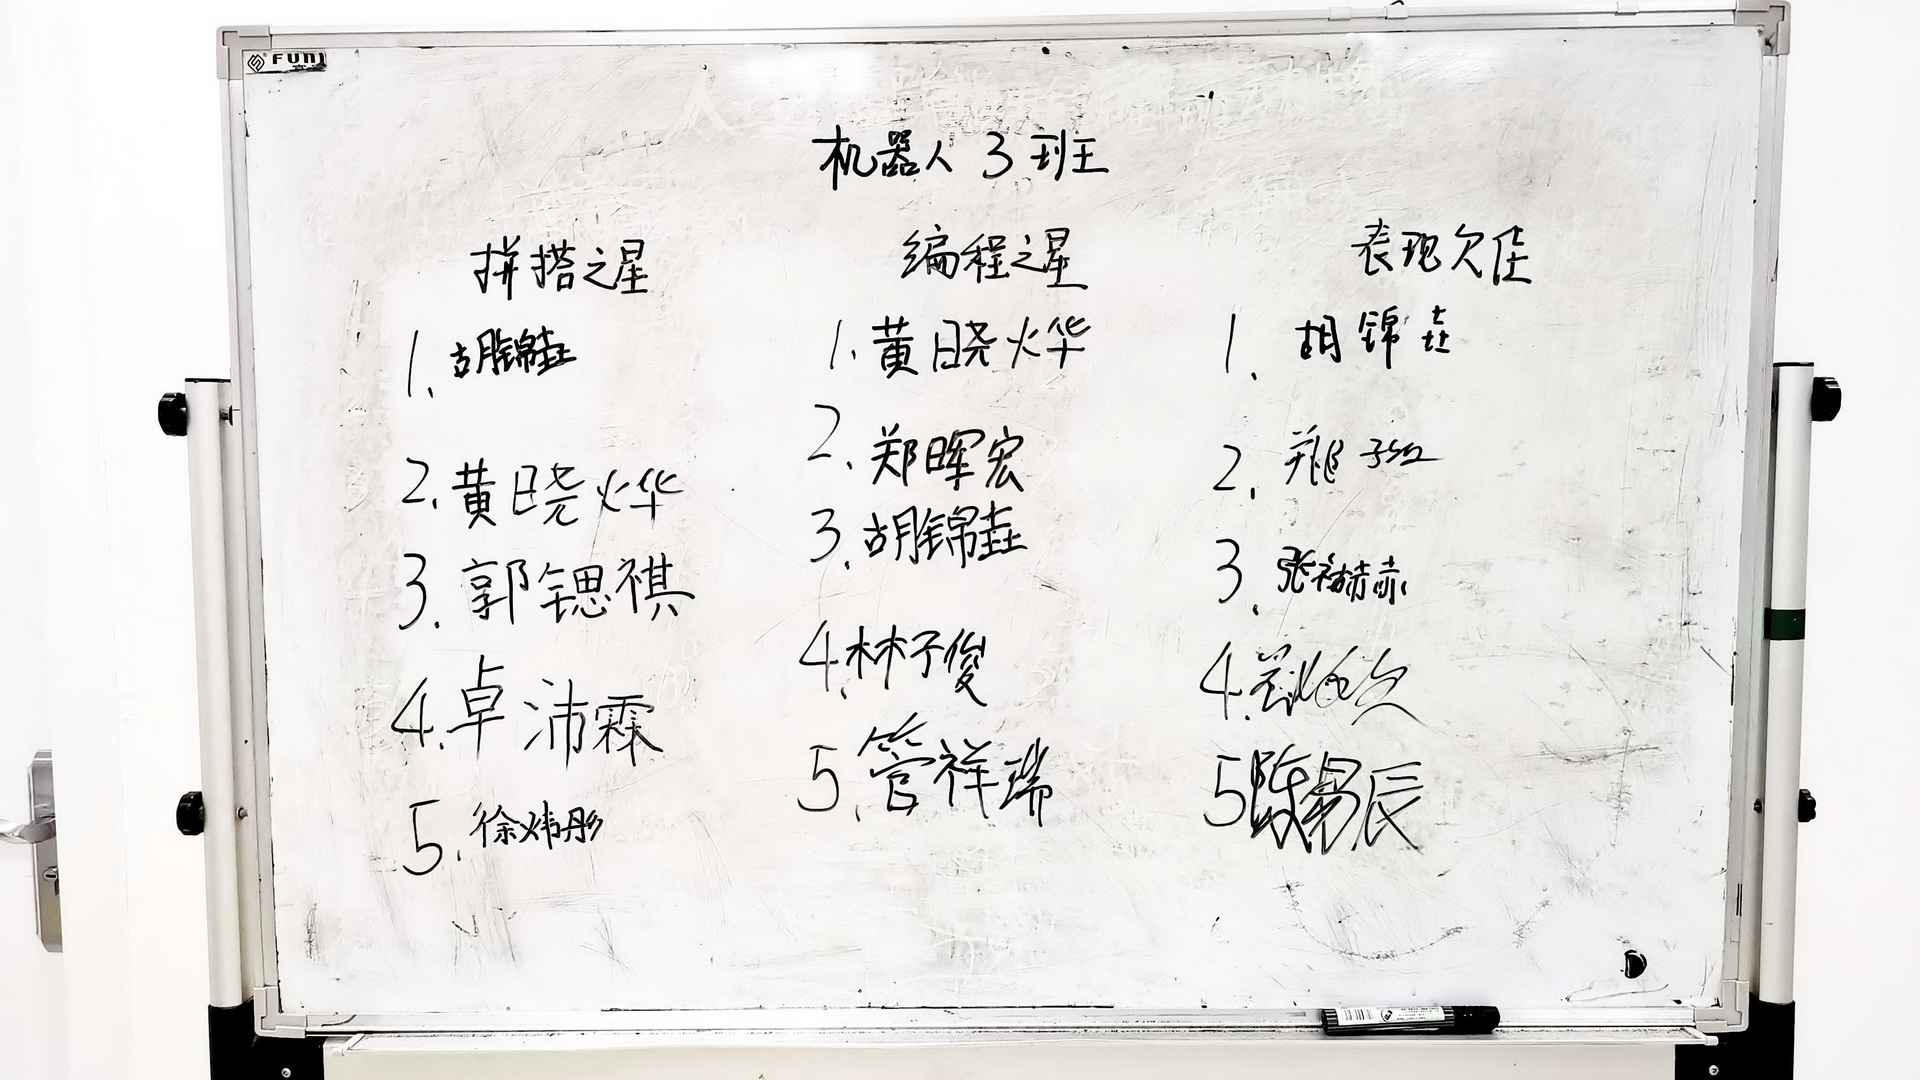 FUNJ
机器人 3 班
拼搭之星
1. 胡锦垚
2. 黄晓烨
3. 郭锶祺
4. 卓沛霖
5. 徐炜彤
编程之星
1. 黄晓烨
2. 郑晖宏
3. 胡锦垚
4. 林子俊
5. 管祥瑞
表现欠佳
1. 胡锦垚
2.
3. 张赫赫
4.
5 陈易辰